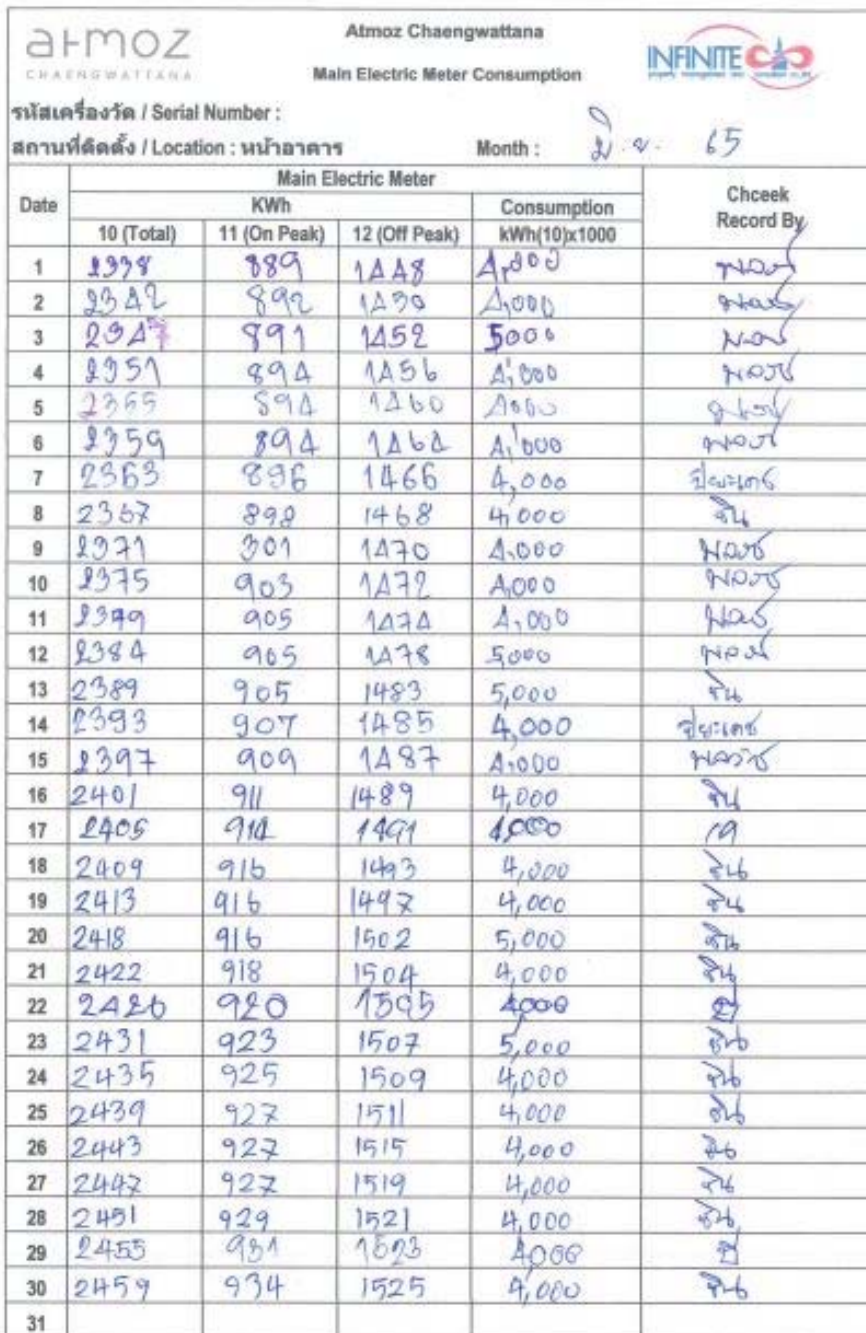 atmoz
CHAENGWATTANA
Atmoz Chaengwattana
Main Electric Meter Consumption
INFINITE
รหัสเครื่องวัด / Serial Number :
สถานที่ติดตั้ง / Location : หน้าอาคาร Month : มิ.ย. 65
Main Electric Meter
Date KWh Consumption Chceek Record By
10 (Total) 11 (On Peak) 12 (Off Peak) kWh(10)x1000
1 2338 889 1448 4,000
2 2342 892 1450 4,000
3 2347 891 1452 5000
4 2351 894 1456 4,000
5 2355 894 1460 4000
6 2359 894 1464 4,000
7 2363 896 1466 4,000 ปิยะเดช
8 2367 898 1468 4,000 ชิน
9 2371 901 1470 4,000
10 2375 903 1472 4,000
11 2379 905 1474 4,000
12 2384 905 1478 5,000
13 2389 905 1483 5,000 ชิน
14 2393 907 1485 4,000 ปิยะเดช
15 2397 909 1487 4,000
16 2401 911 1489 4,000 ชิน
17 2405 914 1491 4,000
18 2409 916 1493 4,000 ชิน
19 2413 916 1497 4,000 ชิน
20 2418 916 1502 5,000 ชิน
21 2422 918 1504 4,000 ชิน
22 2426 920 1505 4,000
23 2431 923 1507 5,000 ชิน
24 2435 925 1509 4,000 ชิน
25 2439 927 1511 4,000 ชิน
26 2443 927 1515 4,000 ชิน
27 2447 927 1519 4,000 ชิน
28 2451 929 1521 4,000 ชิน
29 2455 931 1523 4,000
30 2459 934 1525 4,000 ชิน
31